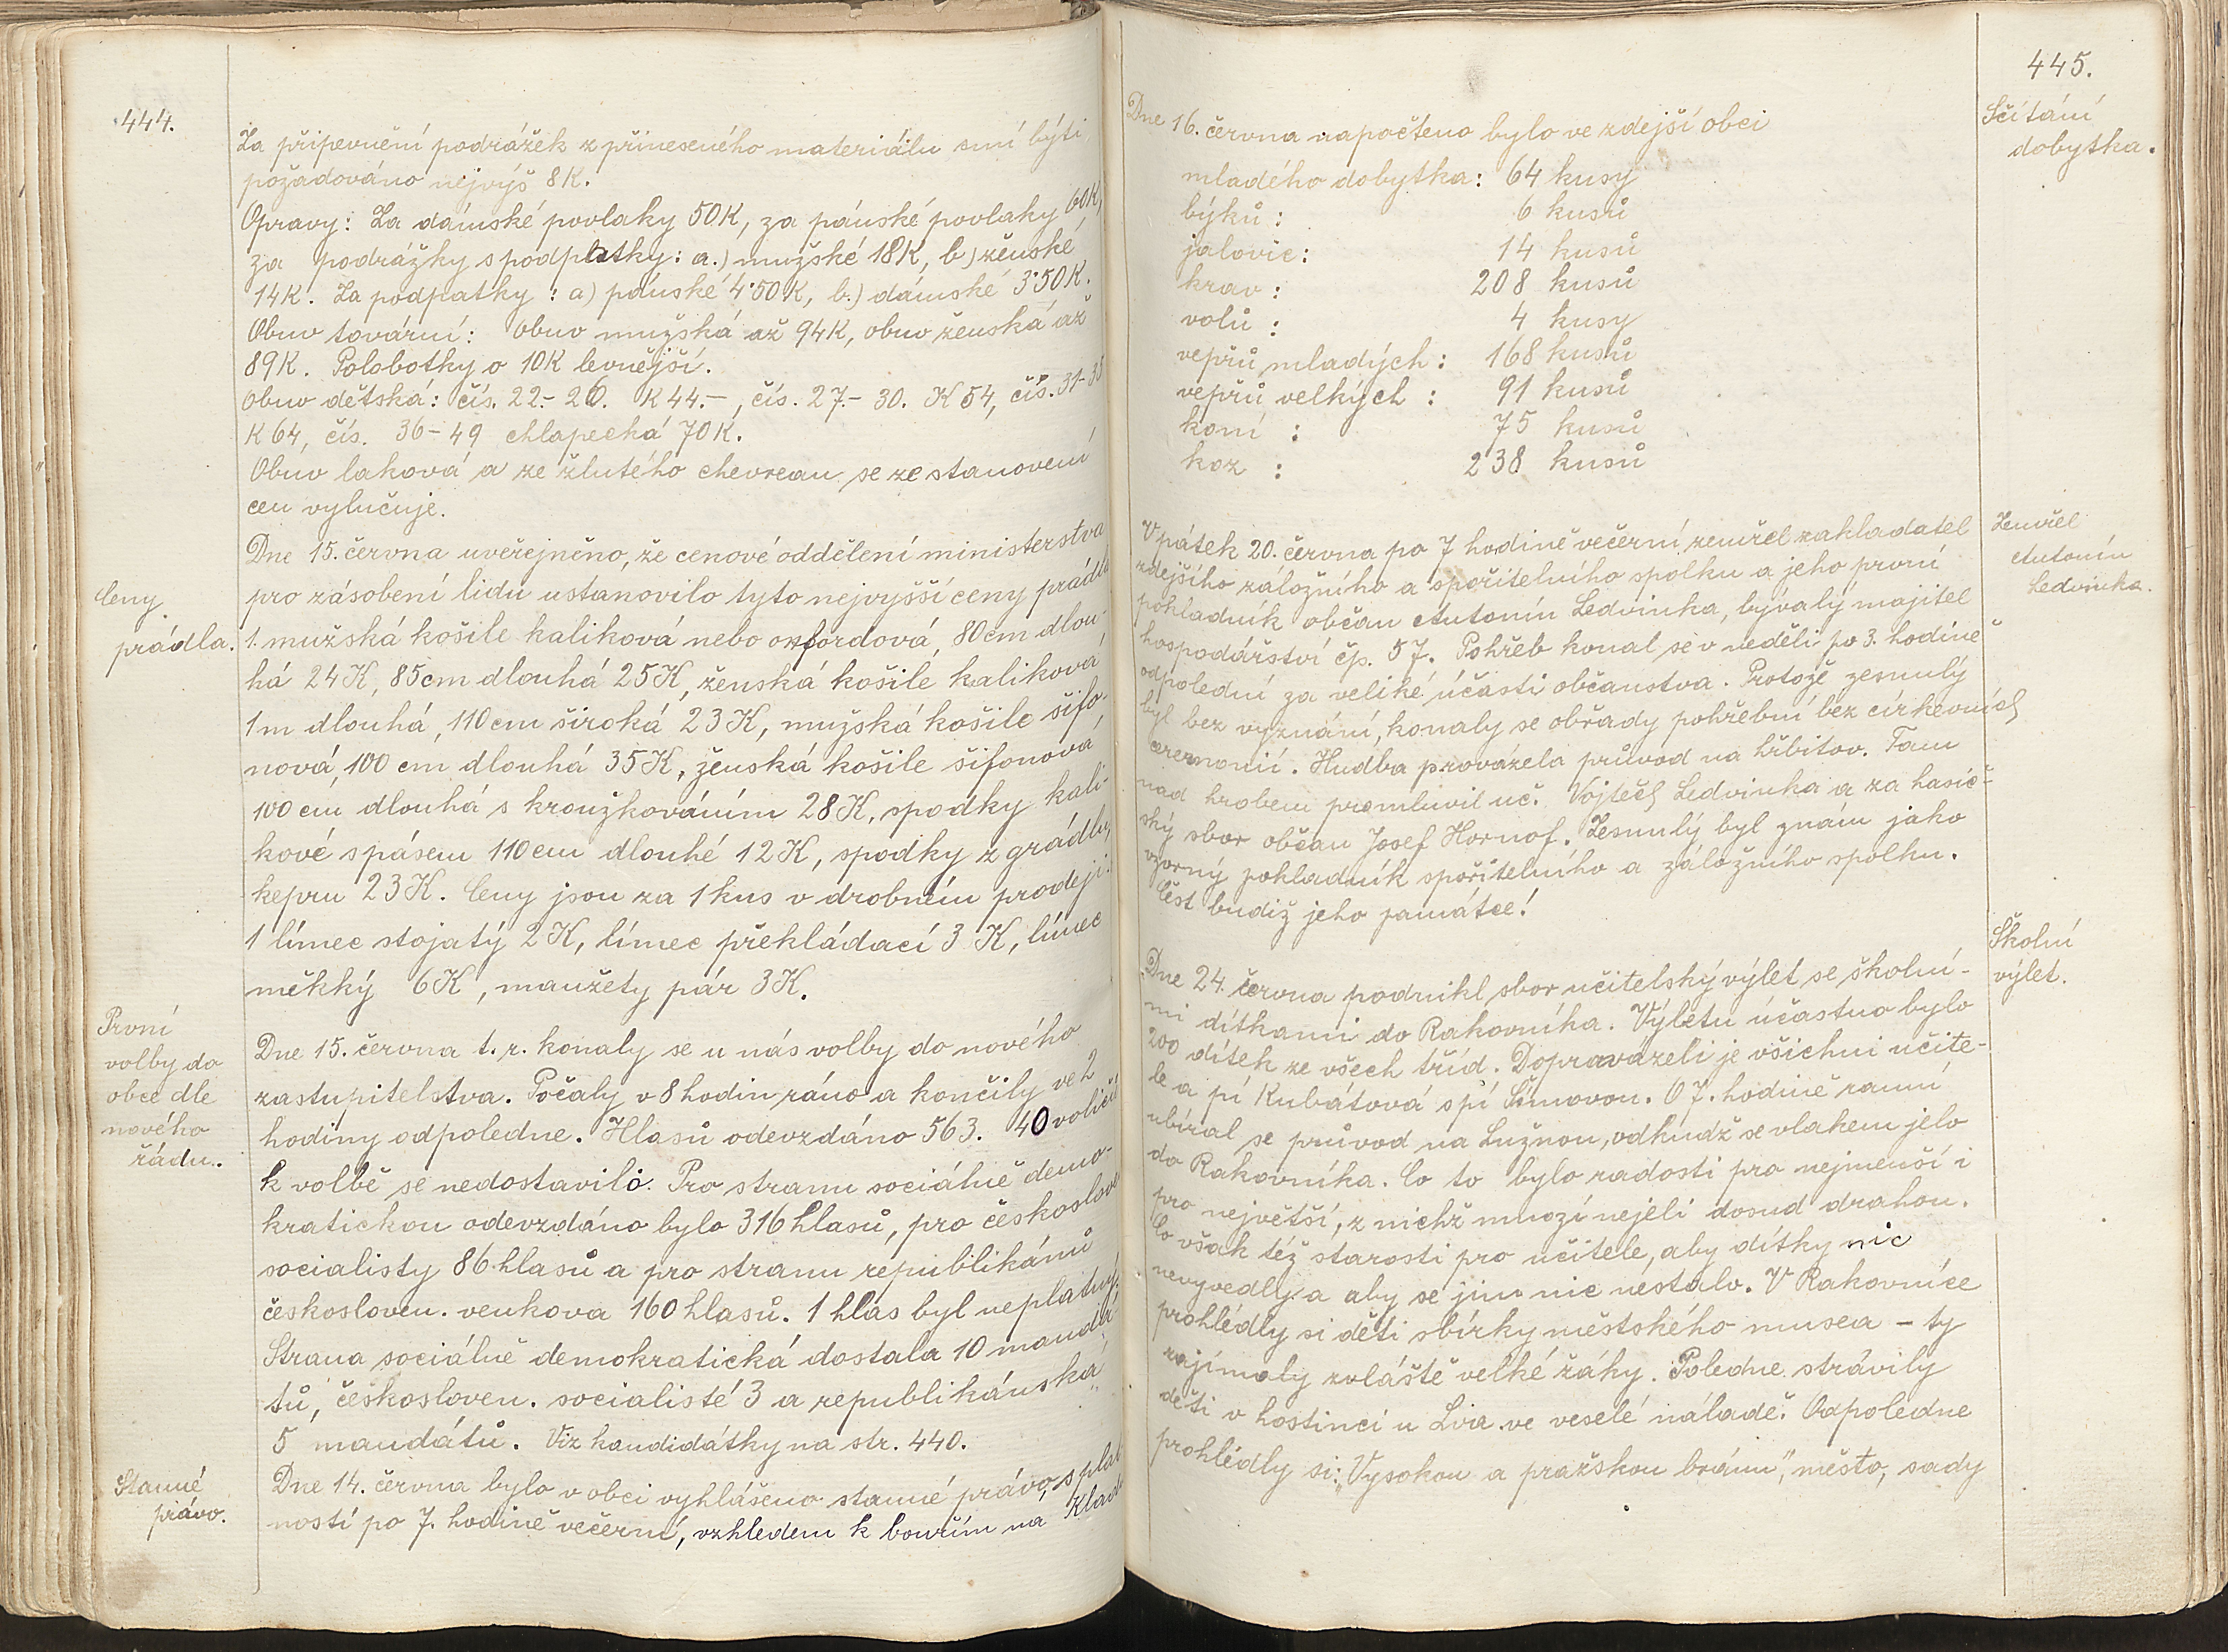 444.
Za připevnění podrážek z přineseného materiálu smí býti
požadováno nejvýš 8K.
Opravy: Za dámské povlaky 50K, za pánské povlaky 60K,
za podrážky s podpatky: a.) mužské 18K, b) ženské
14K. Za podpatky : a) pánské 4·50K, b.) dámské 3·50K.
Obuv tovární: Obuv mužská až 94K, obuv ženská až
89K. Polobotky o 10K levnější.
Obuv dětská: čís. 22.- 26. K 44.-, čís. 27.- 30. K 54, čís. 31-35
K 64, čís. 36-49 chlapecká 70K.
Obuv laková a ze žlutého chevreau se ze stanovení
cen vylučuje.
Ceny
prádla.
Dne 15. června uveřejněno, že cenové oddělení ministerstva
pro zásobení lidu ustanovilo tyto nejvyšší ceny prádla
1. mužská košile kaliková nebo oxfordová, 80cm dlou-
há 24K, 85cm dlouhá 25K, ženská košile kaliková
1m dlouhá, 110cm široká 23K, mužská košile šifo-
nová, 100 cm dlouhá 35K, ženská košile šifonová
100 cm dlouhá s kroužkováním 28K, spodky kali-
kové s pásem 110cm dlouhé 12K, spodky z grádlu,
kepru 23K. Ceny jsou za 1 kus v drobném prodeji.
1 límec stojatý 2K, límec překládací 3 K, límec
měkký 6K, manžety pár 3K.
První
volby do
obce dle
nového
řádu.
Dne 15. června t. r. konaly se u nás volby do nového
zastupitelstva. Počaly v 8 hodin ráno a končily ve 2
hodiny odpoledne. Hlasů odevzdáno 563. 40 voličů
k volbě se nedostavilo. Pro stranu sociálně demo-
kratickou odevzdáno bylo 316 hlasů, pro českoslove
socialisty 86 hlasů a pro stranu republikánů
českosloven. venkova 160 hlasů. 1 hlas byl neplatný.
Strana sociálně demokratická dostala 10 mandá-
tů, českosloven. socialisté 3 a republikánská
5 mandátů. Viz kandidátky na str. 440.
Stanné
právo.
Dne 14. června bylo v obci vyhlášeno stanné právo, s plat
ností po 7. hodině večerní, vzhledem k bouřím na Klad
445.
Sčítání
dobytka.
Dne 16. června napočteno bylo ve zdejší obci
mladého dobytka: 64 kusy
býků : 6 kusů
jalovic: 14 kusů
krav : 208 kusů
volů : 4 kusy
vepřů mladých : 168 kusů
vepřů velkých : 91 kusů
koní : 75 kusů
koz : 238 kusů
Zemřel
Antonín
Ledvinka.
V pátek 20. června po 7 hodině večerní zemřel zakladatel
zdejšího záložního a spořitelního spolku a jeho první
pokladník občan Antonín Ledvinka, bývalý majitel
hospodářství čp. 57. Pohřeb konal se v neděli po 3. hodině
odpolední za veliké účasti občanstva. Protože zesnulý
byl bez vyznání, konaly se obřady pohřební bez církevních
ceremonií. Hudba provázela průvod na hřbitov. Tam
nad hrobem promluvil uč. Vojtěch Ledvinka a za hasič-
ský sbor občan Josef Hornof. Zesnulý byl znám jako
vzorný pokladník spořitelního a záložního spolku.
Čest budiž jeho památce!
Školní
výlet.
Dne 24. června podnikl sbor učitelský výlet se školní-
mi dítkami do Rakovníka. Výletu účastno bylo
200 dítek ze všech tříd. Dopravázeli je všichni učite-
le a pí Kubátová s pí Šímovou. O 7. hodině ranní
ubíral se průvod na Lužnou, odkudž se vlakem jelo
do Rakovníka. Co to bylo radosti pro nejmenší i
pro největší, z nichž mnozí nejeli dosud drahou.
Co však též starosti pro učitele, aby dítky nic
nevyvedly a aby se jim nic nestalo. V Rakovníce
prohlédly si děti sbírky městského musea - ty
zajímaly zvláště velké žáky. Poledne strávily
děti v hostinci u Lva ve veselé náladě. Odpoledne
prohlédly si: „Vysokou a pražskou bránu", město, sady